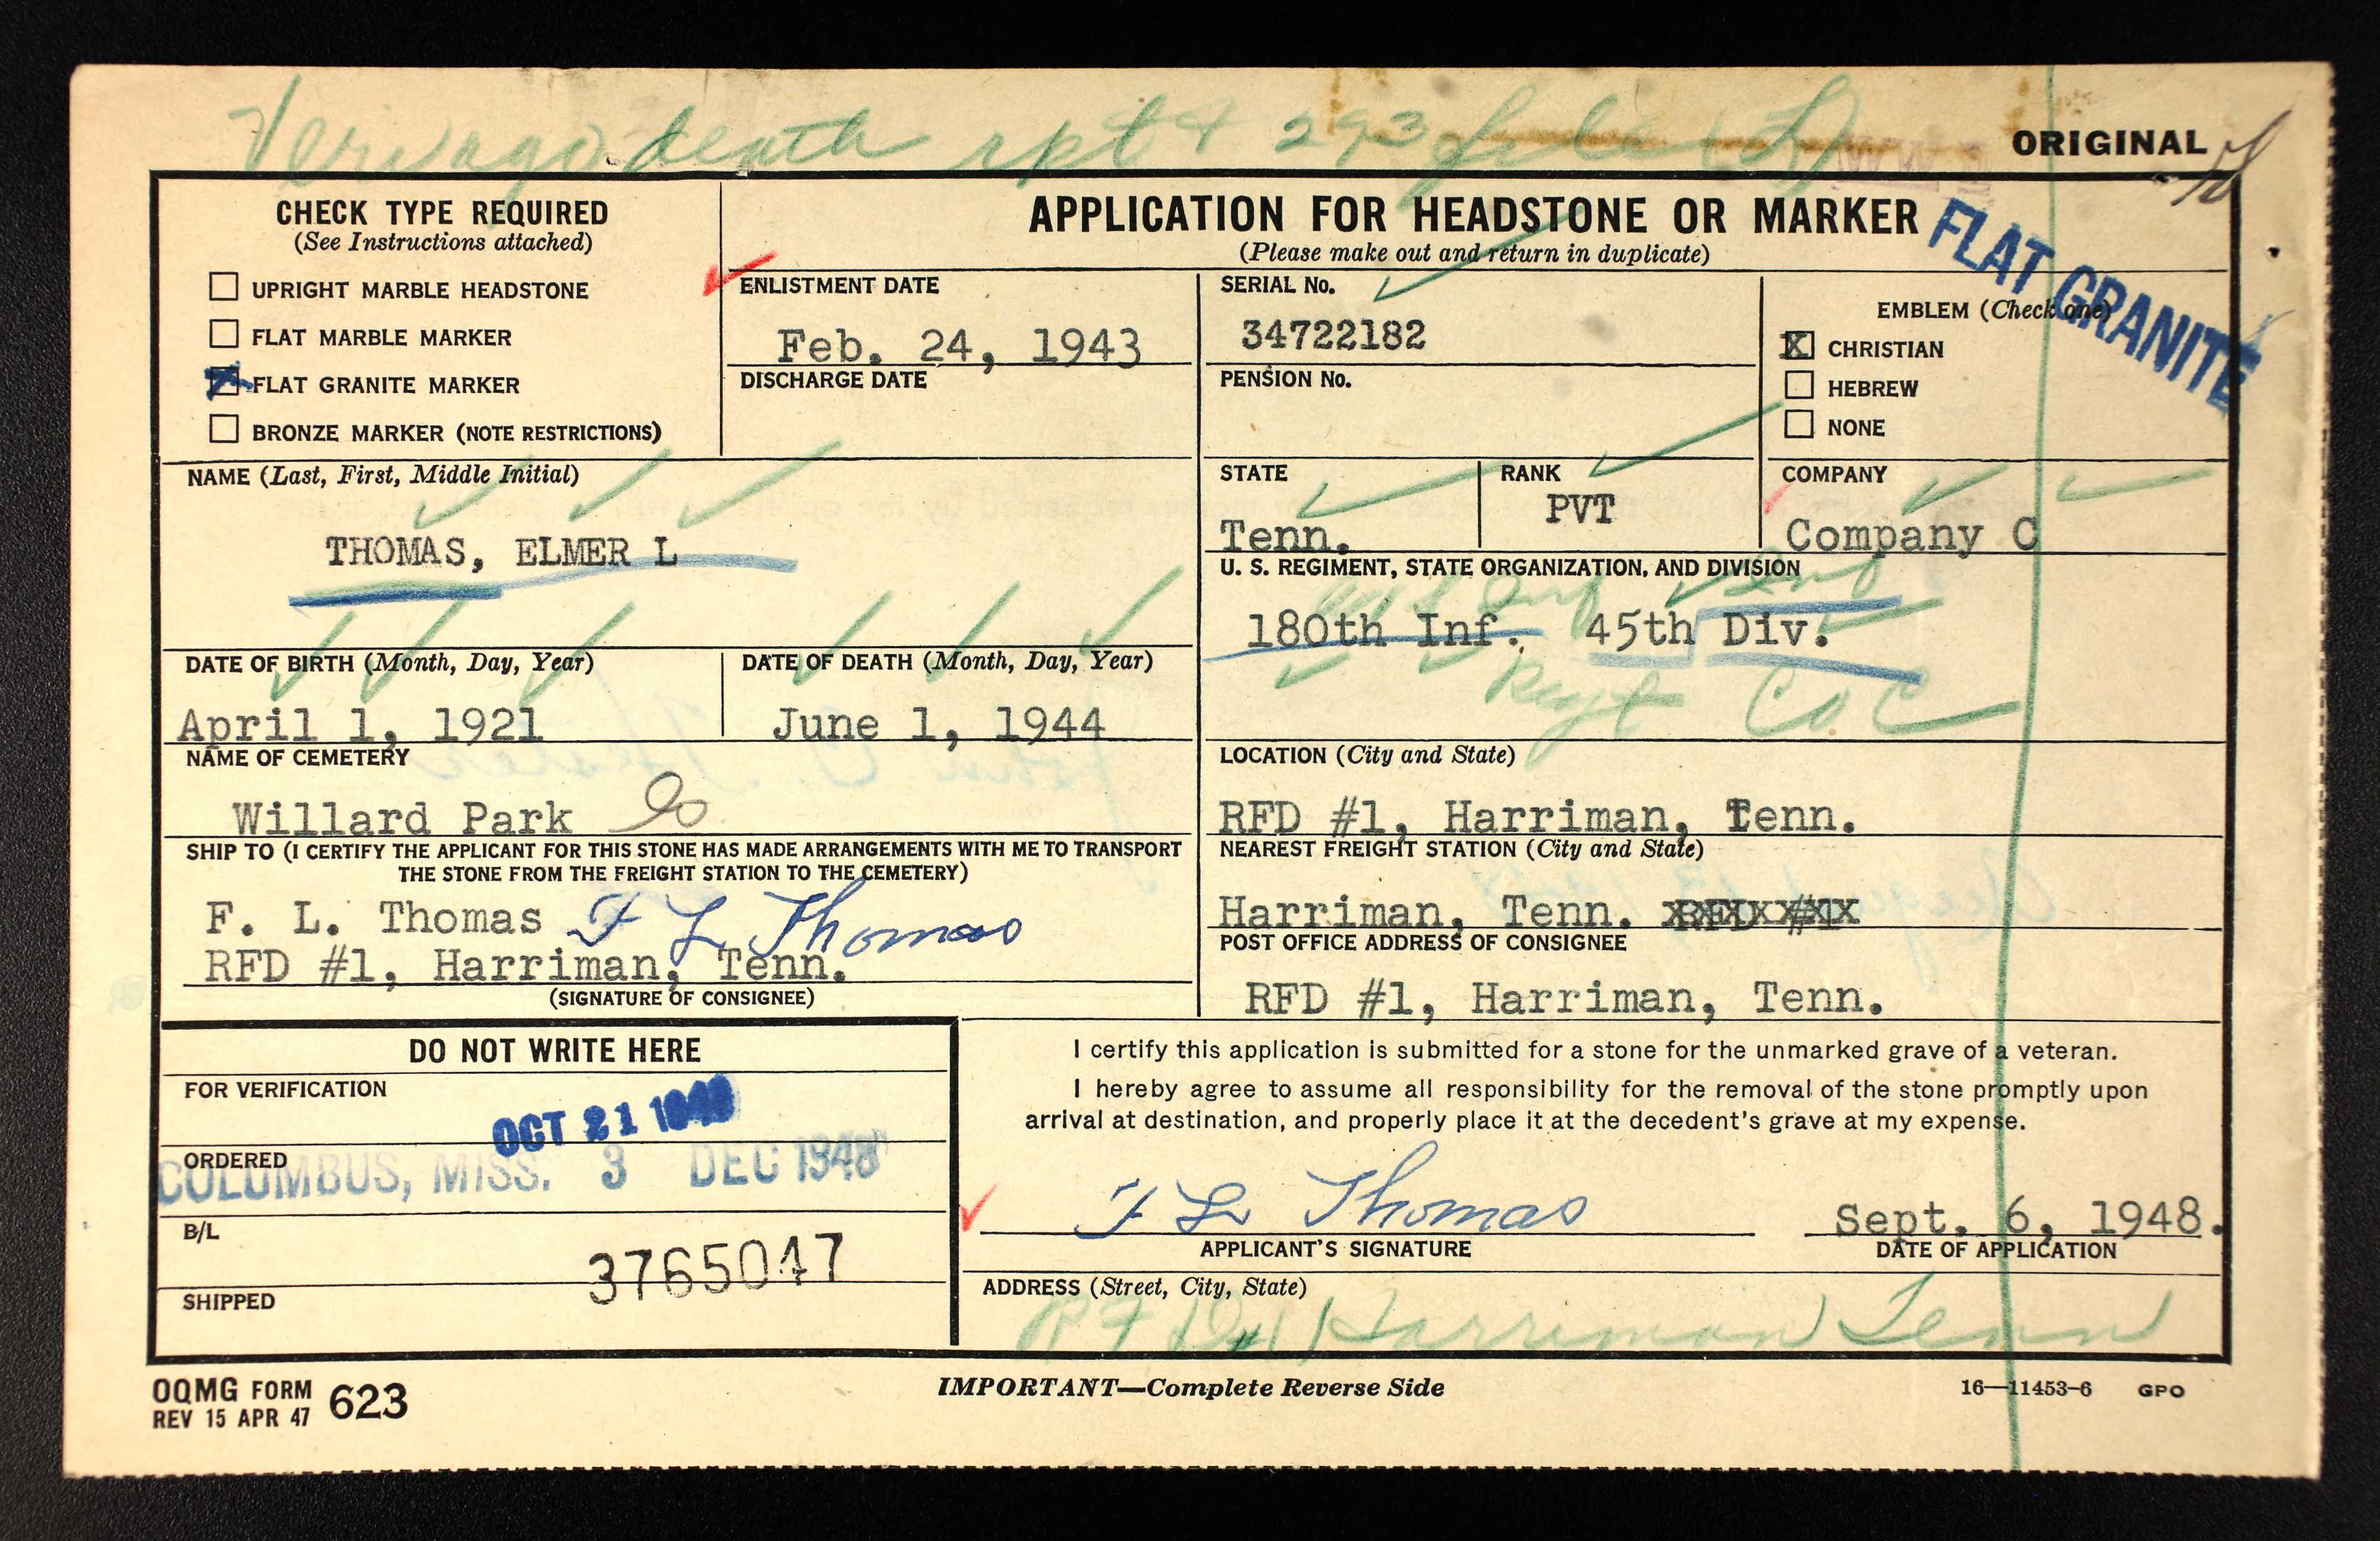 Veri ago death rpt & 293 file (L)
ORIGINAL
CHECK TYPE REQUIRED
(See Instructions attached)
UPRIGHT MARBLE HEADSTONE
FLAT MARBLE MARKER
X FLAT GRANITE MARKER
BRONZE MARKER (NOTE RESTRICTIONS)
APPLICATION FOR HEADSTONE OR MARKER
(Please make out and return in duplicate)
FLAT GRANITE
ENLISTMENT DATE
Feb. 24, 1943
DISCHARGE DATE
SERIAL No.
34722182
PENSION No.
EMBLEM (Check one)
X CHRISTIAN
HEBREW
NONE
NAME (Last, First, Middle Initial)
THOMAS, ELMER L
STATE
Tenn.
RANK
PVT
COMPANY
Company C
U. S. REGIMENT, STATE ORGANIZATION, AND DIVISION
Inf
180th Inf. 45th Div.
Regt Co C
DATE OF BIRTH (Month, Day, Year)
April 1, 1921
DATE OF DEATH (Month, Day, Year)
June 1, 1944
NAME OF CEMETERY
Willard Park
LOCATION (City and State)
RFD #1, Harriman, Tenn.
SHIP TO (I CERTIFY THE APPLICANT FOR THIS STONE HAS MADE ARRANGEMENTS WITH ME TO TRANSPORT
THE STONE FROM THE FREIGHT STATION TO THE CEMETERY)
F. L. Thomas F L Thomas
RFD #1, Harriman, Tenn.
(SIGNATURE OF CONSIGNEE)
NEAREST FREIGHT STATION (City and State)
Harriman, Tenn.
POST OFFICE ADDRESS OF CONSIGNEE
RFD #1, Harriman, Tenn.
DO NOT WRITE HERE
FOR VERIFICATION
OCT 21 1948
ORDERED
COLUMBUS, MISS. 3 DEC 1948
B/L
3765047
SHIPPED
I certify this application is submitted for a stone for the unmarked grave of a veteran.
I hereby agree to assume all responsibility for the removal of the stone promptly upon
arrival at destination, and properly place it at the decedent's grave at my expense.
F L Thomas
APPLICANT'S SIGNATURE
Sept. 6, 1948.
DATE OF APPLICATION
ADDRESS (Street, City, State)
RFD #1 Harriman Tenn
OQMG FORM 623
REV 15 APR 47
IMPORTANT—Complete Reverse Side
16—11453-6 GPO